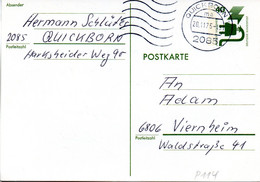 Absender
Hermann Schlüter
2085 QUICKBORN
Postleitzahl
Harksheider Weg 90
QUICKBORN
2085
POSTKARTE
An
Adam
6806 Viernheim
Postleitzahl
Waldstraße 41
P 114